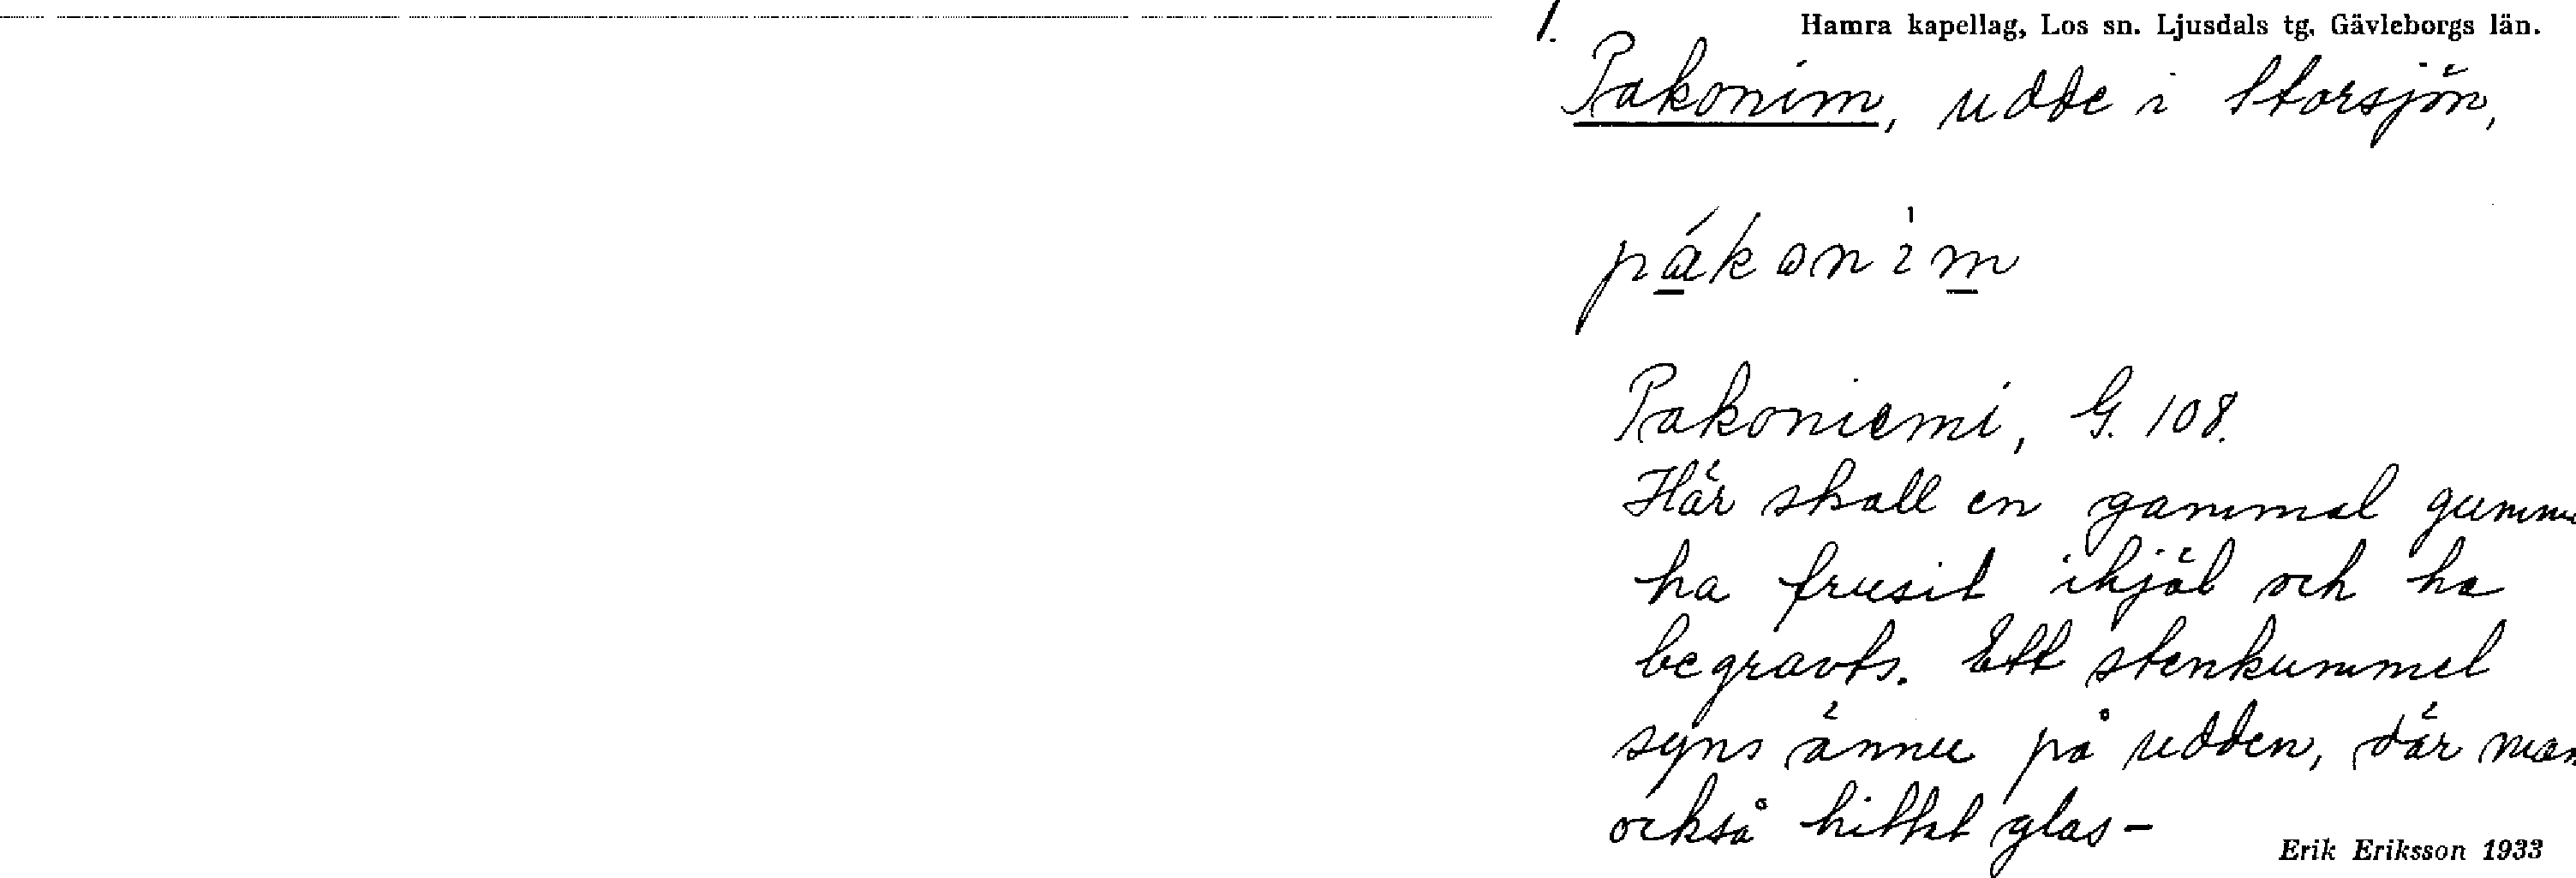 1.
Hamra kapellag, Los sn. Ljusdals tg. Gävleborgs län.
Pakonim, udde i Storsjön,
pákonìm
Pakoniemi, G. 108.
Här skall en gammal gumm
ha frusit ihjäl och ha
begravts. Ett stenkummel
syns ännu på udden, där man
också hittat glas-
Erik Eriksson 1933